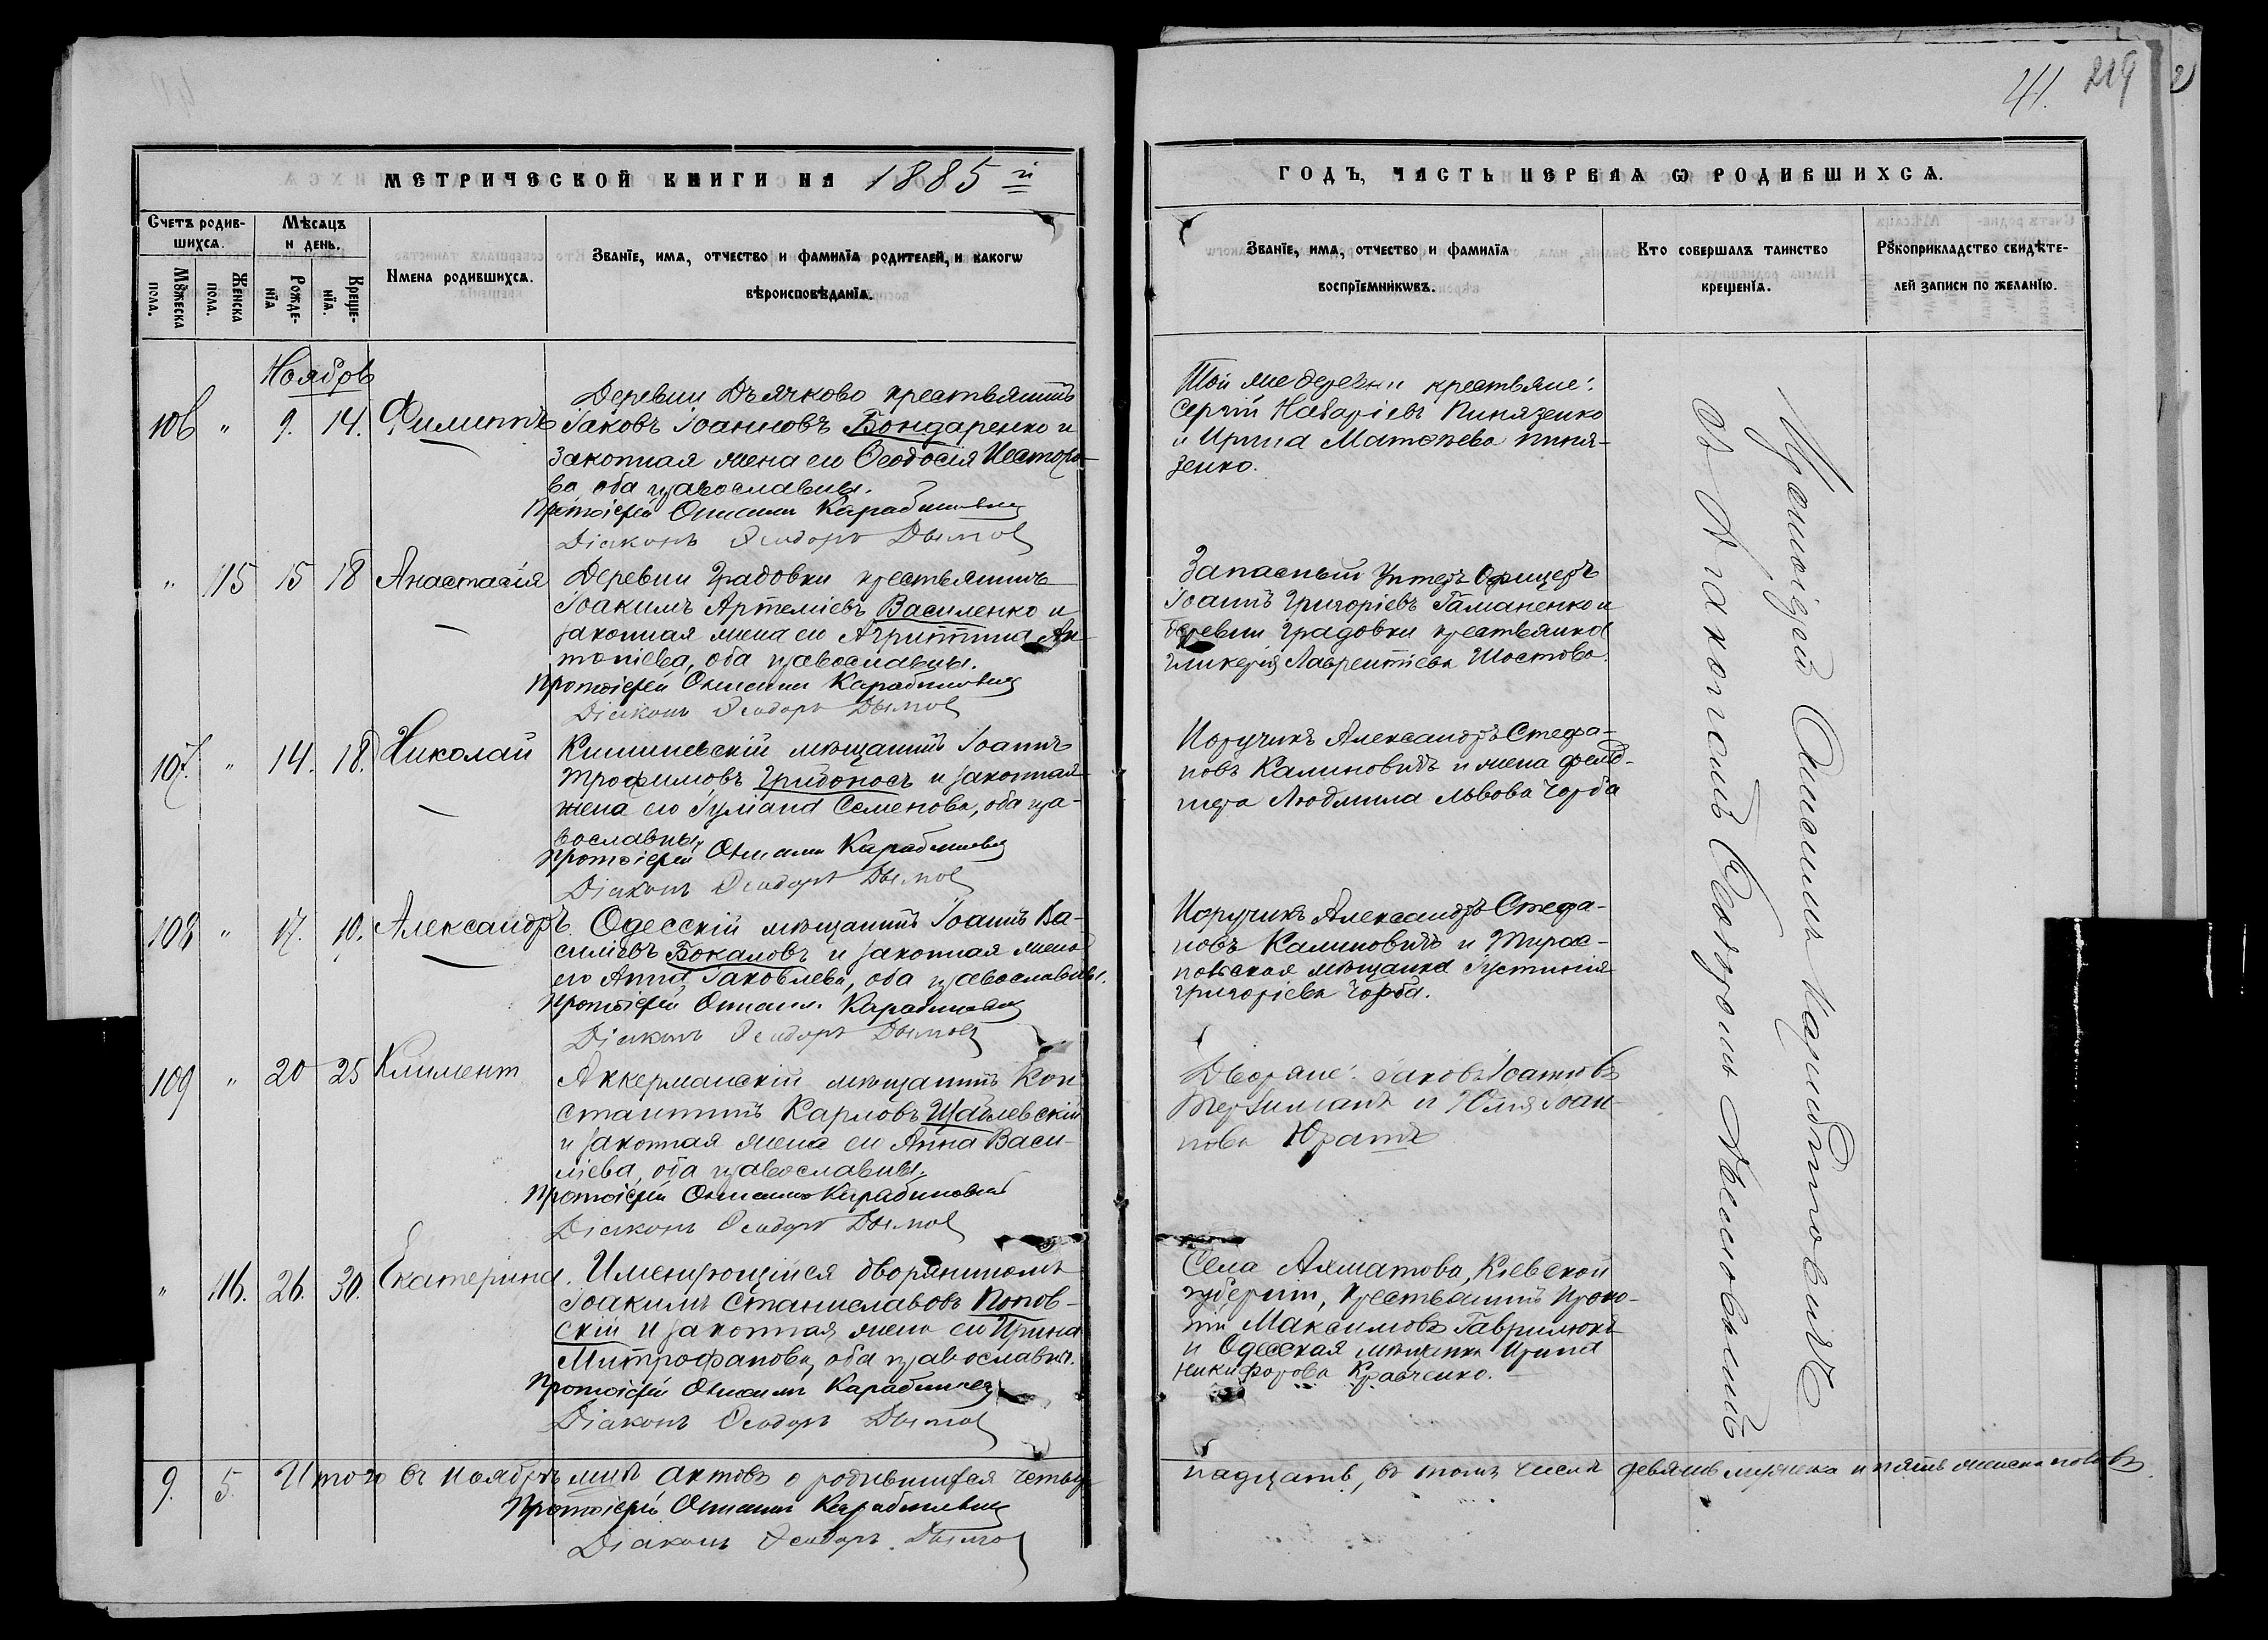 41. 219
МЕТРИЧЕСКОЙ КНИГИ НА 1885 й
ГОДЪ, ЧАСТЬ ПЕРВАѦ Ѡ РОДИВШИХСѦ.
Счетъ родив-
шихсѧ.
Мѣсѧцъ
и день.
Мꙋжеска
пола.
Женска
пола.
Рожде-
нїѧ
Креще-
нїѧ.
Имена родившихсѧ.
Званїе, имѧ, отчество и фамилїѧ родителей, и какогѡ
вѣроисповѣданїѧ.
Званїе, имѧ, отчество и фамилїѧ
воспрїемникѡвъ.
Кто совершалъ таинство
крещенїѧ.
Рꙋкоприкладство свидѣте-
лей записи по желанїю.
Ноябрь
106 " 9. 14. Филиппъ
Деревни Дъячково крестьянинъ
Іаковъ Іоанновъ Бондаренко и
законная жена его Ѳеодосія Несторо-
ва, оба православны.
Протоіерей Онисимъ Карабиновичъ
Діаконъ Ѳеодоръ Дымов
Той же деревни крестьяне:
Сергій Назаріевъ Пинязенко
и Ирина Матѳѣева Пиня-
зенко.
" 115 15 18 Анастасія
Деревни Градовки крестьянинъ
Іоакимъ Артеміевъ Василенко и
законная жена его Агриппина Ан-
тоніева, оба православны.
Протоіерей Онисимъ Карабиновичъ
Діаконъ Ѳеодоръ Дымов
Запасный Унтеръ Офицеръ
Іоаннъ Григоріевъ Гаманенко и
деревни Градовки крестьянка
Гликерія Лаврентіева Шостова.
107. " 14. 18. Николай
Кишиневскій мѣщанинъ Іоаннъ
Трофимовъ Грибоносъ и законная
жена его Іуліана Семенова, оба пра-
вославны.
Протоіерей Онисимъ Карабиновичъ
Діаконъ Ѳеодоръ Дымов
Поручикъ Александръ Стефа-
новъ Калиновичъ и жена фельд-
шера Людмила Львова Чорба
108 " 17. 10. Александръ.
Одесскій мѣщанинъ Іоаннъ Ва-
силіевъ Бокаловъ и законная жена
его Анна Іаковлева, оба православны.
Протоіерей Онисим. Карабиновичъ
Діаконъ Ѳеодоръ Дымов
Поручикъ Александръ Стефа-
новъ Калиновичъ и Тирас-
польская мѣщанка Іустинія
Григоріева Чорба.
109 " 20 25 Климент
Аккерманскій мѣщанинъ Кон
стантинъ Карловъ Щавлевскій
и законная жена его Анна Васи-
ліева, оба православны.
Протоіерей Онисимъ Карабиновичъ
Діаконъ Ѳеодоръ Дымов
Дворяне: Іаковъ Іоанновъ
и Юлія Іоан-
нова
" 116. 26. 30. Екатерина.
Именующійся дворяниномъ
Іоакимъ Станиславовъ Попов-
скій и законная жена его Ирина
Митрофанова, оба православны.
Протоіерей Онисимъ Карабиновичъ
Діаконъ Ѳеодоръ Дымов
Села Ахматова, Кіевской
губерніи, крестьянинъ Проко-
пій Максимовъ Гаврилюкъ
и Одесская мѣщанка Ирина
Никифорова Кравченко.
Протоіерей Онисимъ Карабиновичъ
съ Діакономъ Ѳеодоромъ
9. 5. Итого въ ноябрѣ мцѣ актовъ о родившихся четыр-
надцать, въ томъ числѣ девять мужеска и пять женска половъ.
Протоіерей Онисимъ Карабиновичъ
Діаконъ Ѳеодоръ Дымов